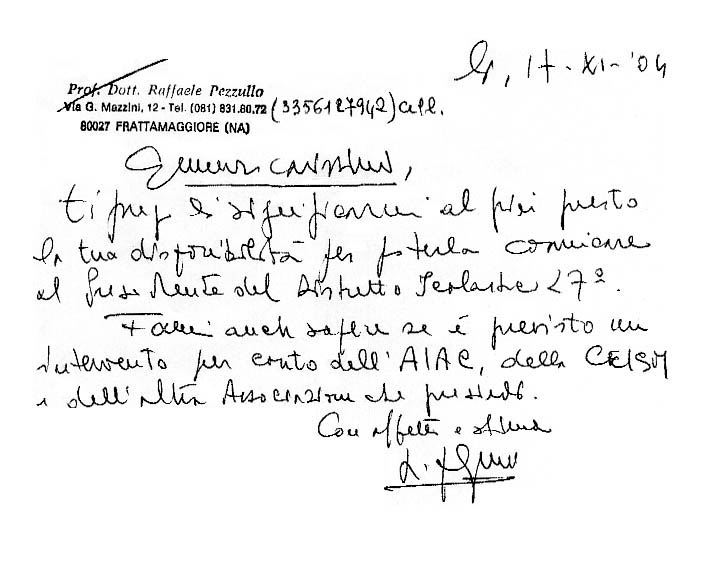 lì, 17-XI-'04
Prof. Dott. Raffaele Pezzullo
Via G. Mazzini, 12 - Tel. (081) 831.80.72 (3356127942) cell.
80027 FRATTAMAGGIORE (NA)
carissimo,
ti prego di significarmi al più presto
la tua disponibilità per poterla comunicare
al Presidente del Distretto Scolastico 27º.
Fammi anche sapere se è previsto un
intervento per conto dell'AIAC, della
e dell'altra Associazione che presiedi.
Con affetto e stima